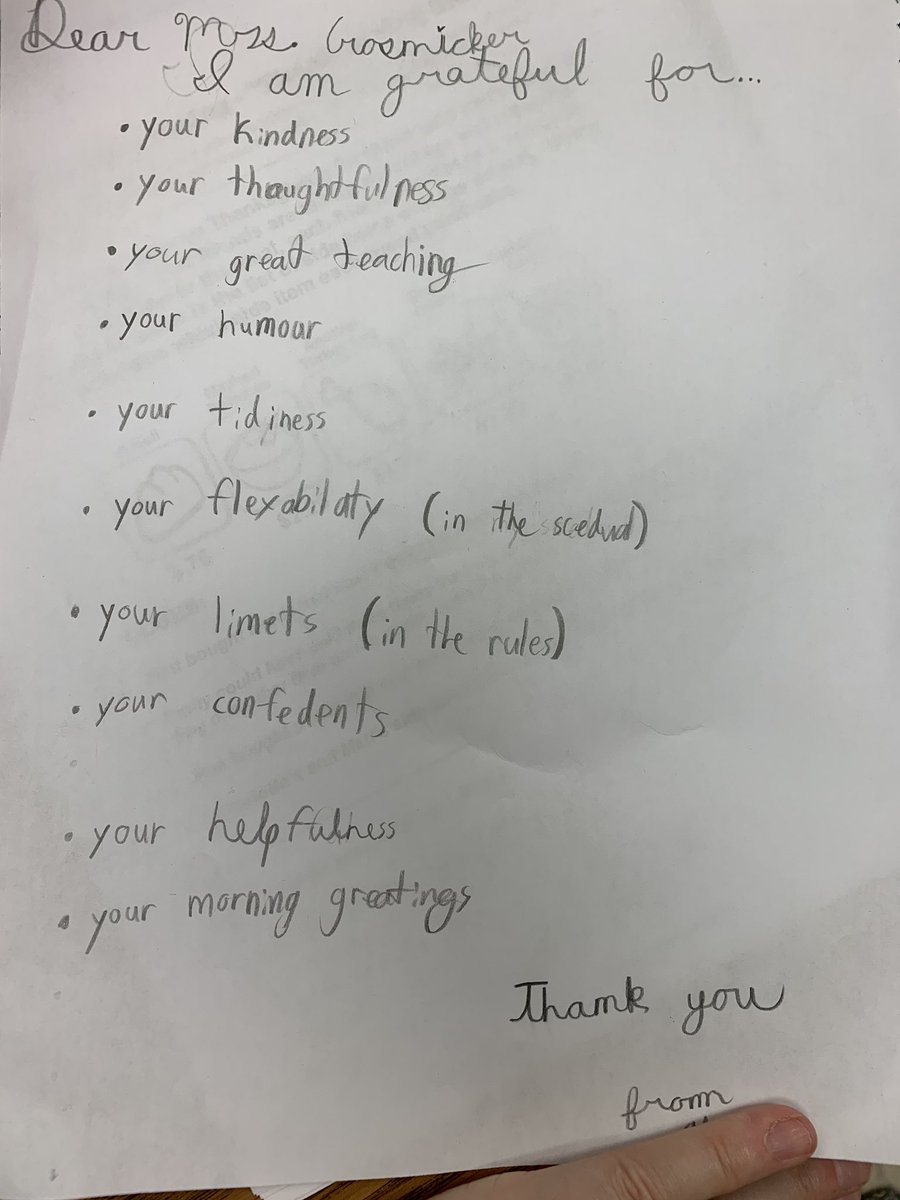 Dear Mrs. Grosmicker
I am grateful for...
• your kindness
• your thoughtfulness
• your great teaching
• your humour
• your tidiness
• your flexabilaty (in the scedual)
• your limets (in the rules)
• your confedents
• your helpfulness
• your morning greatings
Thank you
from